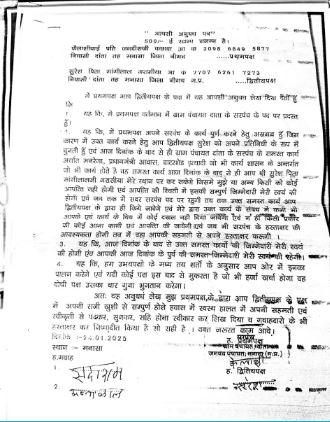 " आपसी अनुबंध पत्र "
500/- ई स्टाम्प संलग्न है।
कैलाशीबाई पति जगदीशजी आ नं 3098 6849 5877
निवासी दांता तह मनासा जिला नीमच ......प्रथमपक्ष
सुरेश पिता मांगीलाल गरासीया आ नं 7707 6261 7273
निवासी दांता तह मनासा जिला नीमच म.प्र. ......द्वितीयपक्ष
में प्रथमपक्ष आप द्वितीयपक्ष के पक्ष में यह आपसी अनुबंध लेख लिख देती हूं
कि
1. यह कि, में प्रथमपक्ष वर्तमान में ग्राम पंचायत दाता के सरपंच के पद पर पदस्थ
हूं।
2. यह कि, में प्रथमपक्ष अपने सरपंच के कार्य पूर्ण करने हेतु असमर्थ हूं जिस
कारण में उक्त कार्य करने हेतु आप द्वितीयपक्ष सुरेश को अपने प्रतिनिधि के रूप में
चुनती हूं एवं आज दिनांक के बाद से ही ग्राम पंचायत दांता के सरपंच के समस्त कार्य
अर्थात मनरेगा, प्रधानमंत्री आवास, वाटरशेड इत्यादी जो भी कार्य शासन के अन्तर्गत
जो भी कार्य होते है वह समस्त कार्य आज दिनांक के बाद से ही आप श्री सुरेश पिता
मांगीलालजी गरासीया मेरे स्थान पर कर सकेगे जिसमें मुझे या अन्य किसी को कोई
आपत्ति नही होगी एवं आपत्ति की स्थिति में इसकी सम्पूर्ण जिम्मेदारी मेरी स्वयं की
होगी एवं जब तक में सदर सरपंच पद पर रहूंगी तब तक उक्त समस्त कार्य आप
द्वितीयपक्ष के द्वारा ही किये जावेगे एवं मेरे द्वारा उक्त कार्य के संबंध में कभी भी
आपके एवं कार्य के बिच में कोई दखल नही दिया जावेगा एवं न ही किसी प्रकार
की कोई अन्य वाणी एवं आपत्ति की जावेगी एवं जब भी सरपंच के हस्ताक्षर की
आवश्यकता होगी तब में उस आपकी सहमती से आपके हस्ताक्षर करूगी।
3. यह कि, आज दिनांक के बाद से उक्त समस्त कार्यो की जिम्मेदारी मेरी स्वयं
की होगी एवं आपकी आज दिनांक के पूर्व की समस्त जिम्मेदारी मेरी स्वयं की रहेगी।
4. यह कि, हम उभयपक्षो के मध्य तय शर्तो के अनुसार आप और में इनका
पालन करेगे एवं यदी कोई पक्ष इस बाद से मुकरता है तो जो भी हर्जा खर्चा होगा वह
दोषी पक्ष उसका चार गुना भुगतान करेगा।
अतः यह अनुबंध लेख मुझ प्रथमपक्ष के द्वारा आप द्वितीयपक्ष के पक्ष
में अपनी राजी खुशी से सम्पूर्ण होशो हवास में स्वस्थ हालत में अपनी सहमती एवं
स्वीकृती से पढकर, सुनकर, सहि होना स्वीकार कर लिख दिया व गवाहदारो के भी
हस्ताक्षर कर निष्पादीत किया है सो सही है। वक्त जरूरत काम आवे।
दिनांक :-24.01.2025
स्थान :- मनासा
ह.गवाह
ह. प्रथमपक्ष
1.
ह. द्वितीयपक्ष
2.